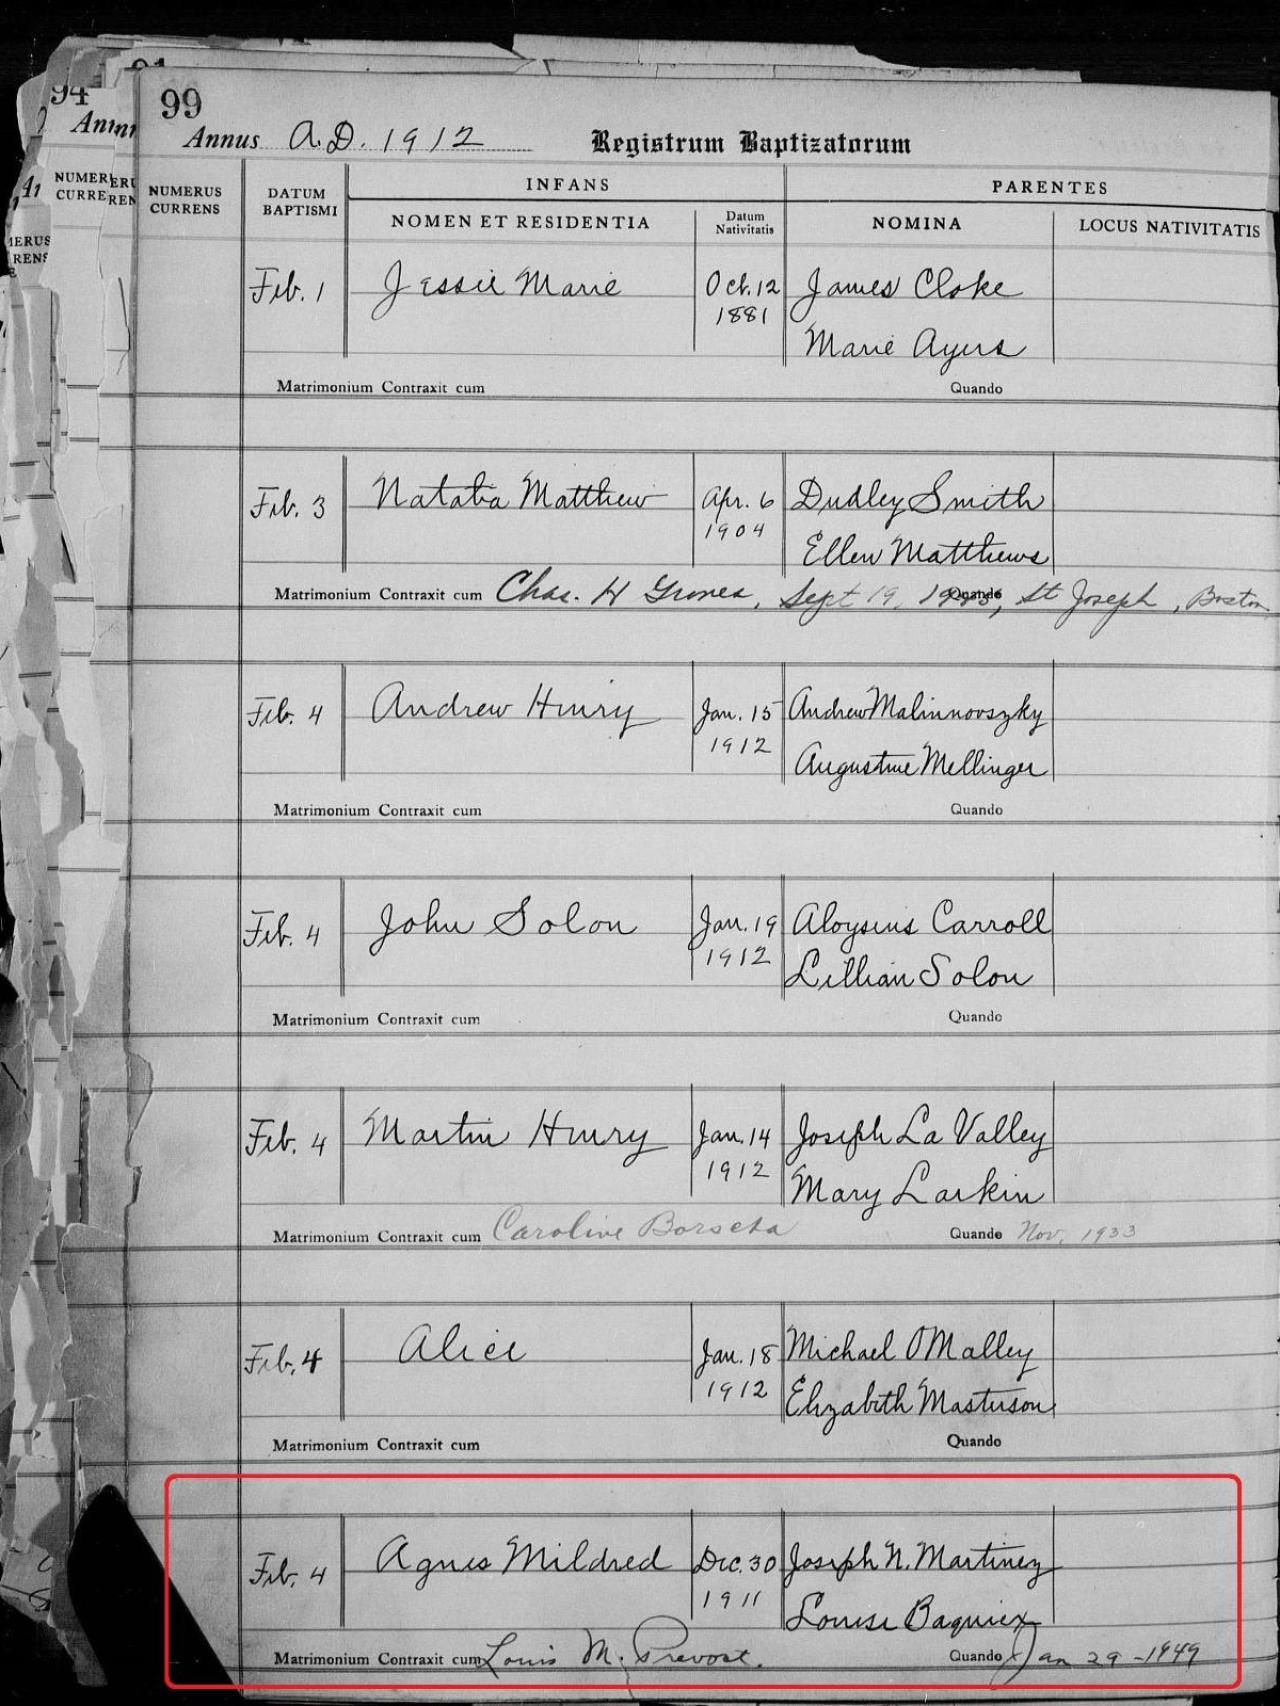 94
99
Annus A.D. 1912 Registrum Baptizatorum
NUMERUS CURRENS DATUM BAPTISMI INFANS PARENTES
NOMEN ET RESIDENTIA Datum Nativitatis NOMINA LOCUS NATIVITATIS
Feb. 1 Jessie Marie Oct. 12 James Cloke
1881
Marie Ayers
Matrimonium Contraxit cum Quando
Feb. 3 Matthew Apr. 6 Dudley Smith
1904
Ellen Matthews
Matrimonium Contraxit cum Chas. H Sept 19, Quando St Joseph, Boston
Feb. 4 Andrew Henry Jan. 15 Andrew Malinnovszky
1912
Augustine Mellinger
Matrimonium Contraxit cum Quando
Feb. 4 John Solon Jan. 19 Aloysius Carroll
1912
Lillian Solon
Matrimonium Contraxit cum Quando
Feb. 4 Martin Henry Jan. 14 Joseph La Valley
1912
Mary Larkin
Matrimonium Contraxit cum Caroline Quando Nov. 1933
Feb. 4 Alice Jan. 18 Michael OMalley
1912
Elizabeth Masterson
Matrimonium Contraxit cum Quando
Feb. 4 Agnes Mildred Dec. 30 Joseph N. Martinez
1911
Louise
Matrimonium Contraxit cum Louis M. Prevost. Quando Jan 29 - 1949